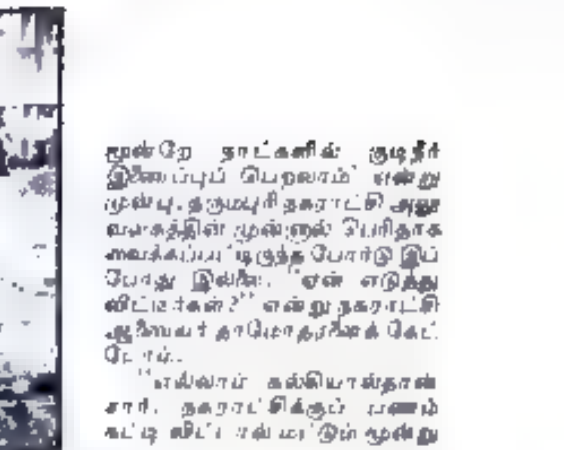 மூன்றே நாட்களில் குடிநீர்
இணைப்புப் பெறலாம்' என்று
முன்பு தருமபுரி நகராட்சி அலு
வலகத்தின் முன்னால் பெரிதாக
வைக்கப்பட்டிருந்த போர்டு இப்
போது இல்லை. "ஏன் எடுத்து
விட்டீர்கள்?" என்று நகராட்சி
ஆணையர் தாமோதரனைக் கேட்
டோம்.
"எல்லாம் கல்கியால்தான்
சார். நகராட்சிக்கும் பணம்
கட்டி விட்டால் மட்டும் மூன்று